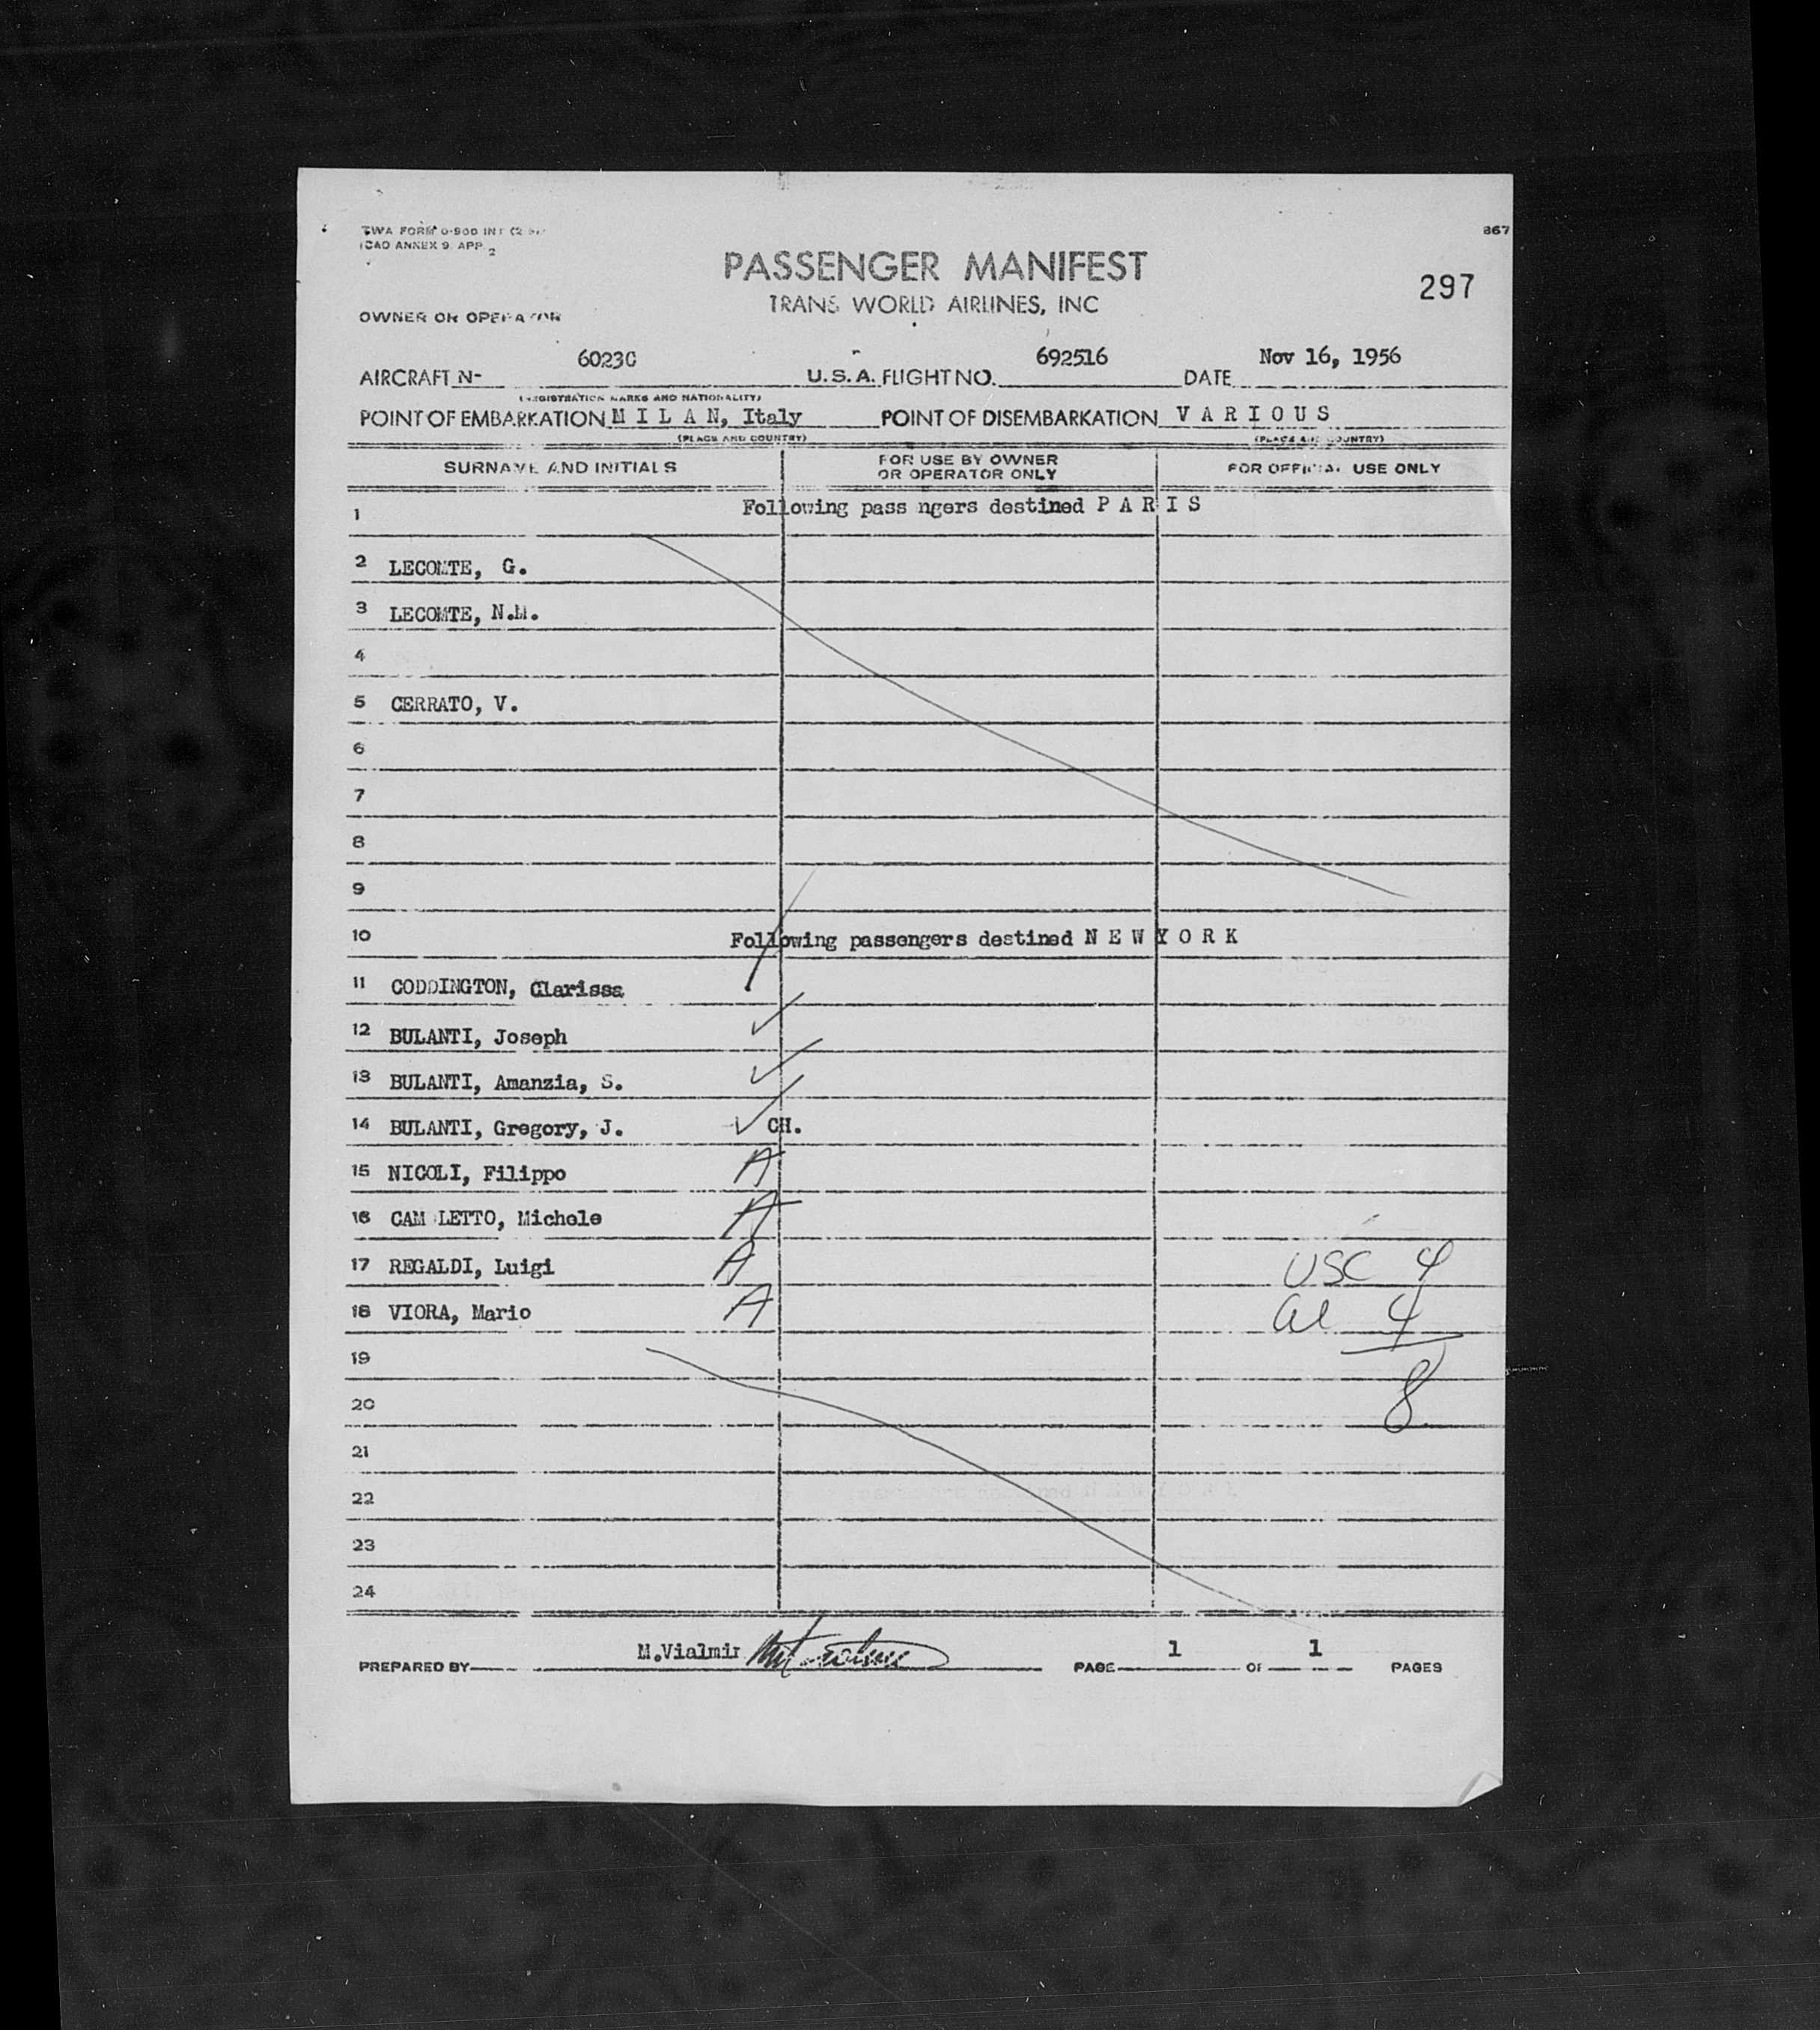 TWA FORM 0-900 INT
ICAO ANNEX 9, APP. 2
867
PASSENGER MANIFEST
297
TRANS WORLD AIRLINES, INC
OWNER OR OPERATOR
AIRCRAFT N- 6023C U.S.A. FLIGHT NO. 692516 DATE Nov 16, 1956
(REGISTRATION MARKS AND NATIONALITY)
POINT OF EMBARKATION M I L A N, Italy POINT OF DISEMBARKATION V A R I O U S
(PLACE AND COUNTRY) (PLACE AND COUNTRY)
SURNAME AND INITIALS FOR USE BY OWNER OR OPERATOR ONLY FOR OFFICIAL USE ONLY
1 Following pass ngers destined P A R I S
2 LECOMTE, G.
3 LECOMTE, N.M.
4
5 CERRATO, V.
6
7
8
9
10 Following passengers destined N E W Y O R K
11 CODDINGTON, Clarissa
12 BULANTI, Joseph ✓
13 BULANTI, Amanzia, S. ✓
14 BULANTI, Gregory, J. ✓ CH.
15 NICOLI, Filippo A
16 CAM LETTO, Michele A
17 REGALDI, Luigi A USC 4
18 VIORA, Mario A al 4
19 8
20
21
22
23
24
PREPARED BY M.Vialmin PAGE 1 OF 1 PAGES